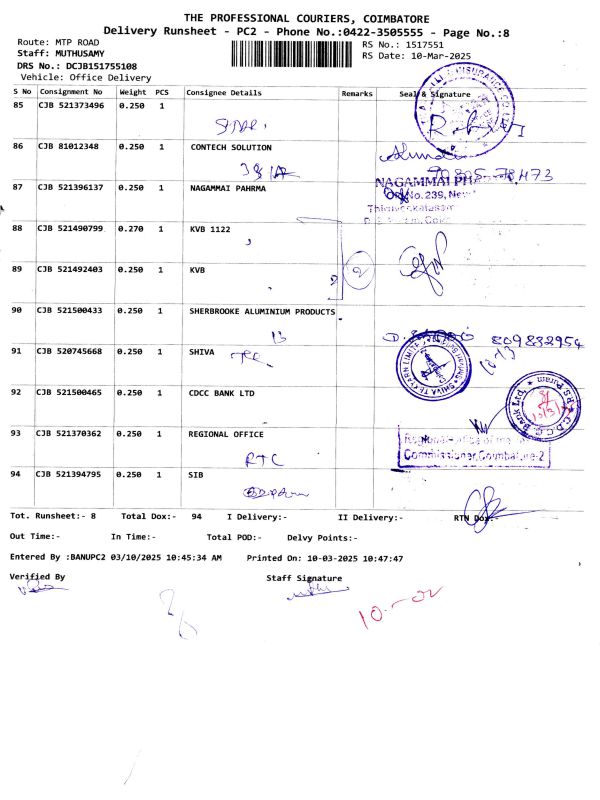 THE PROFESSIONAL COURIERS, COIMBATORE
Delivery Runsheet - PC2 - Phone No.:0422-3505555 - Page No.:8
Route: MTP ROAD
RS No.: 1517551
Staff: MUTHUSAMY
RS Date: 10-Mar-2025
DRS No.: DCJB151755108
Vehicle: Office Delivery
S No Consignment No Weight PCS Consignee Details Remarks Seal & Signature
85 CJB 521373496 0.250 1
86 CJB 81012348 0.250 1 CONTECH SOLUTION
87 CJB 521396137 0.250 1 NAGAMMAI PAHRMA
NAGAMMAI
No.239, New
88 CJB 521490799 0.270 1 KVB 1122
89 CJB 521492403 0.250 1 KVB
2
90 CJB 521500433 0.250 1 SHERBROOKE ALUMINIUM PRODUCTS
809832954
91 CJB 520745668 0.250 1 SHIVA
10/3
92 CJB 521500465 0.250 1 CDCC BANK LTD
C.D.C.C. Bank Ltd. R S Puram
93 CJB 521370362 0.250 1 REGIONAL OFFICE
Regional office of the
Commissioner, Coimbatore-2
94 CJB 521394795 0.250 1 SIB
Tot. Runsheet:- 8 Total Dox:- 94 I Delivery:- II Delivery:- RTN Dox:-
Out Time:- In Time:- Total POD:- Delvy Points:-
Entered By :BANUPC2 03/10/2025 10:45:34 AM Printed On: 10-03-2025 10:47:47
Verified By Staff Signature